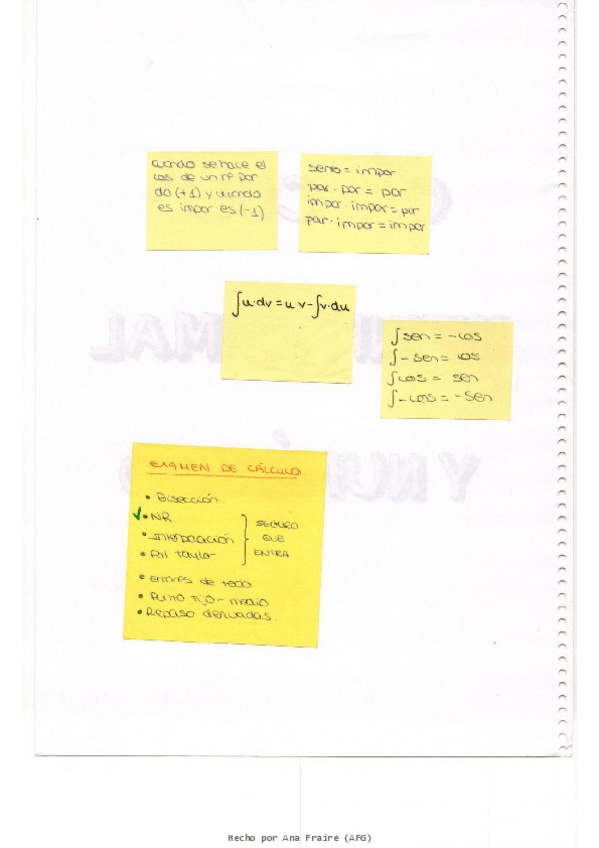 cuando se hace el
cos de un nº par
da (+1) y cuando
es impar es (-1)
seno = impar
par · par = par
impar · impar = par
par · impar = impar
∫u·dv = u v - ∫v·du
∫sen = -cos
∫-sen = cos
∫cos = sen
∫-cos = -sen
EXAMEN DE CÁLCULO
• Bisección
✓• NR
• Interpolación
• Pol Taylor
SEGURO
QUE
ENTRA
• errores de todo
• Punto fijo - medio
• Repaso derivadas.
Hecho por Ana Fraire (AFG)